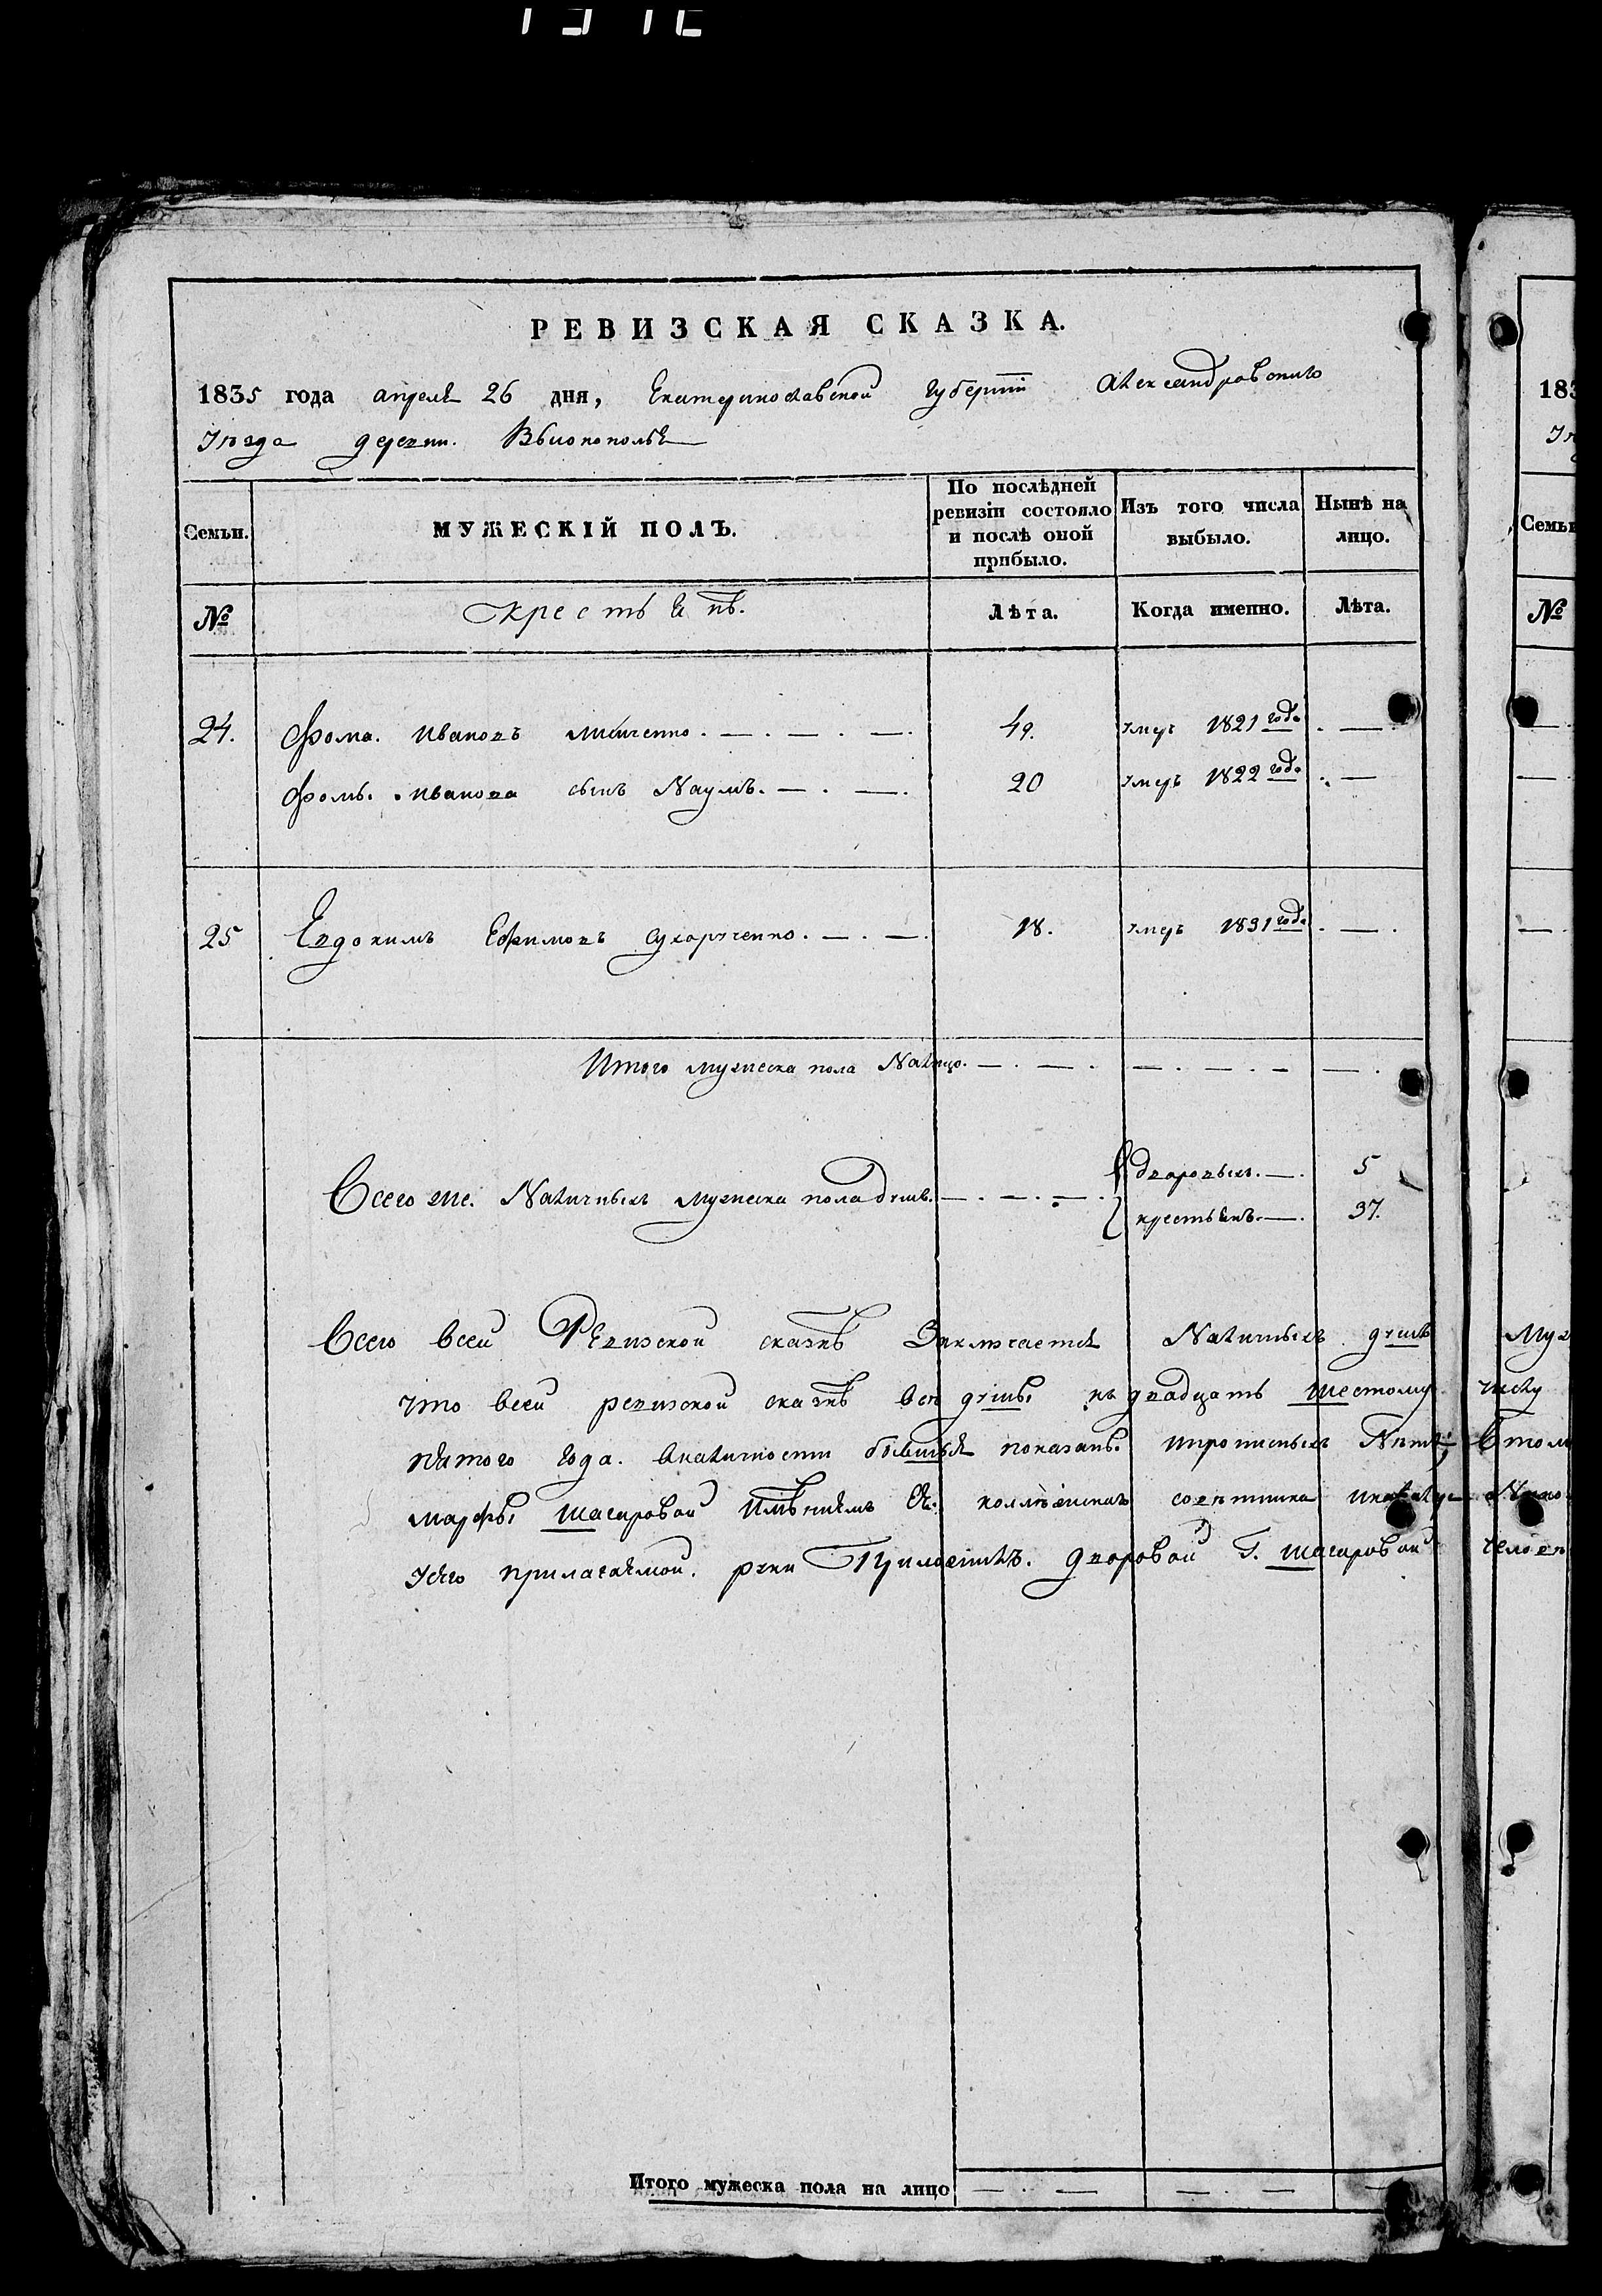 РЕВИЗСКАЯ СКАЗКА.
1835 года апреля 26 дня, Екатеринославской губернiи Александровскаго
уезда деревни
Семьи. МУЖЕСКІЙ ПОЛЪ. По послѣдней ревизіи состояло и послѣ оной прибыло. Изъ того числа выбыло. Нынѣ на лицо.
№ Крестьянъ. Лѣта. Когда именно. Лѣта.
24. Фома Ивановъ 49. умеръ 1821 года
Фомы Иванова сынъ Наумъ. 20 умеръ 1822 года
25 Евдокимъ Ефимовъ 18. умеръ 1831 года
Итого мужеска пола Налицо.
Всего же Наличныхъ мужеска пола душъ.
дворовыхъ. 5
крестьянъ. 37.
Всего всей Ревизской сказкѣ Заключается Наличныхъ душъ
что всей ревизской сказкѣ все душы къ двадцать шестому числу
пятого года вналичности бывшыя показаны ипрописныхъ Нитъ; втом
марфы шагаровой Имѣниямъ Ея. советника
прилагаямой руки дворовой Г. шагаровой
Итого мужеска пола на лицо
183
Семьи
№